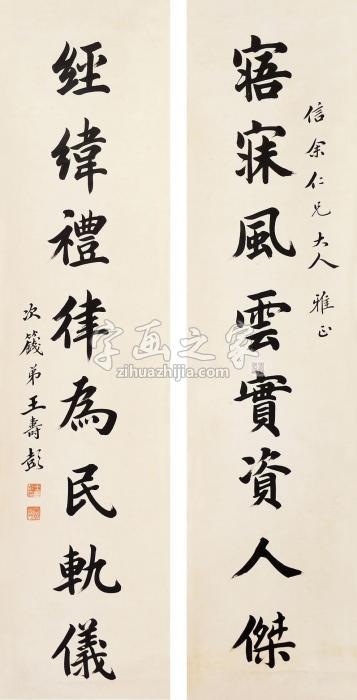 信余仁兄大人 雅正
寤寐風雲實資人傑
經緯禮律為民軌儀
次籛弟王壽彭
字画之家
zihuazhijia.com